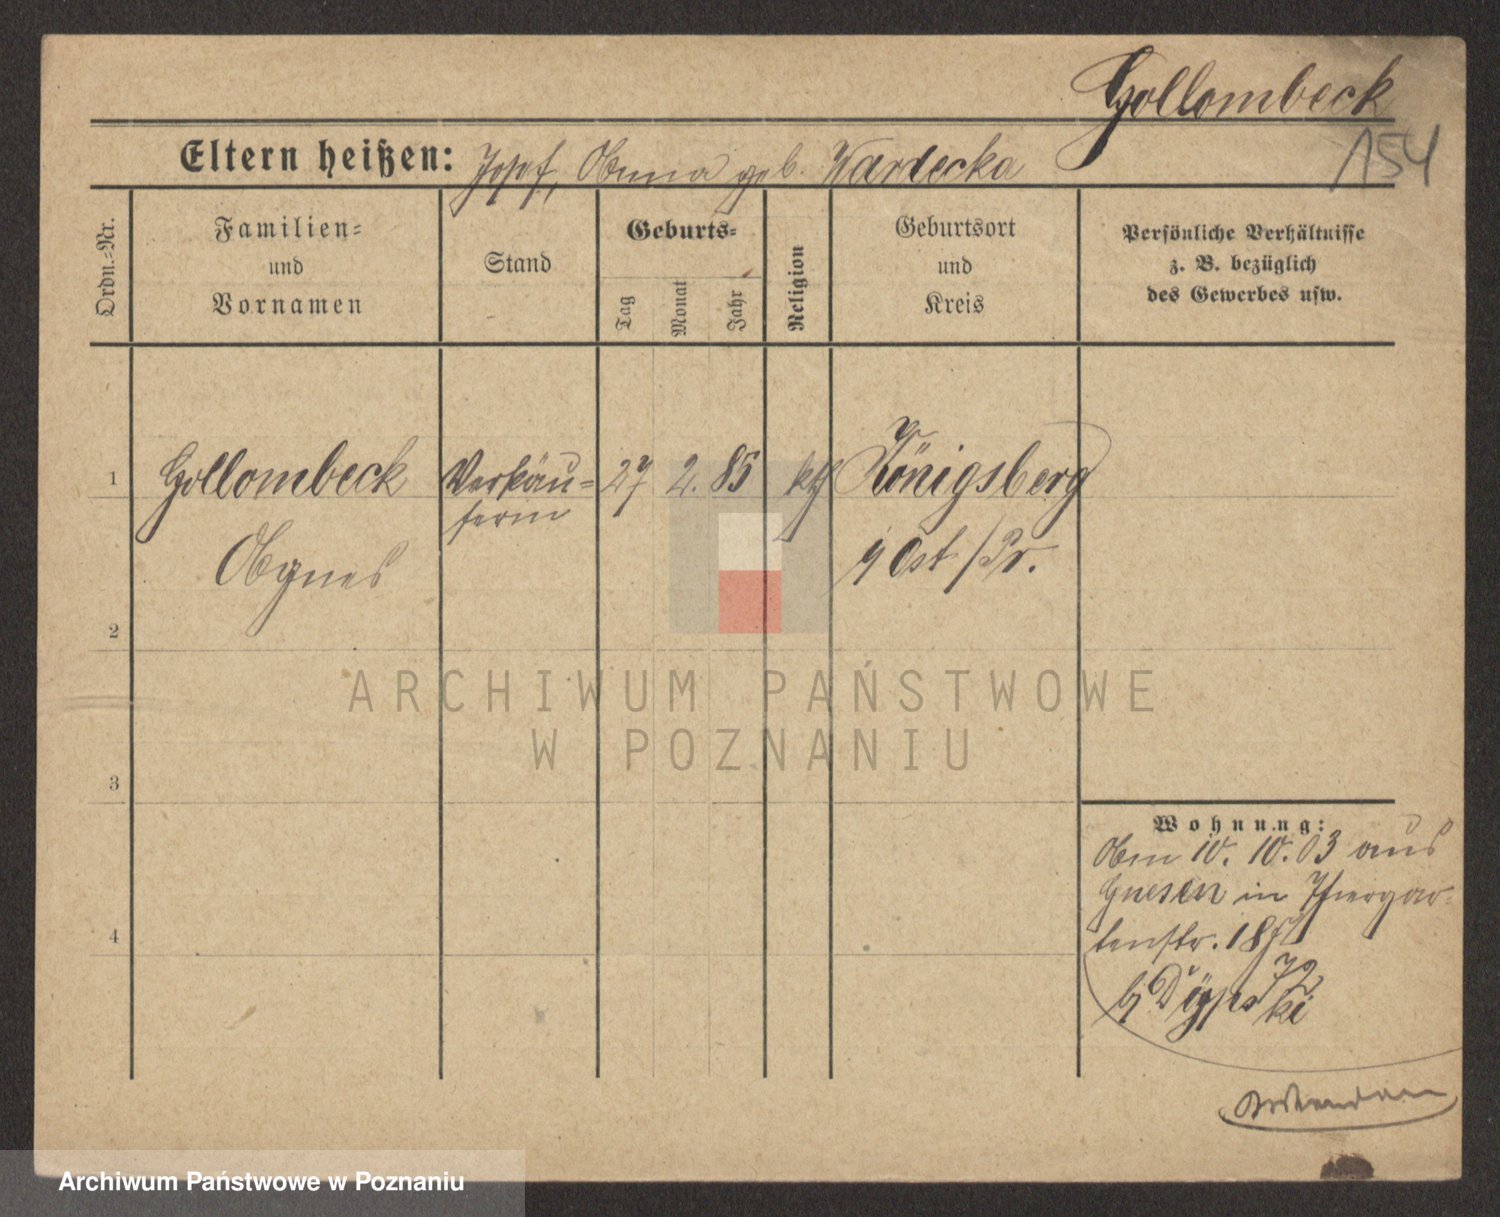 Gollombeck
154
Eltern heißen: Josef, Anna geb. Wardecka
Ordn.-Nr.
Familien-
und
Vornamen
Stand
Geburts-
Tag
Monat
Jahr
Religion
Geburtsort
und
Kreis
Persönliche Verhältnisse
z. B. bezüglich
des Gewerbes usw.
1
Gollombeck
Verkäu-
27
2.
85
kth
Königsberg
ferin
Agnes
Ost/Pr.
2
ARCHIWUM PAŃSTWOWE
W POZNANIU
3
Wohnung:
Am 10. 10. 03 aus
Gnesen in Thiergar-
tenstr. 18
4
b
72
Archiwum Państwowe w Poznaniu